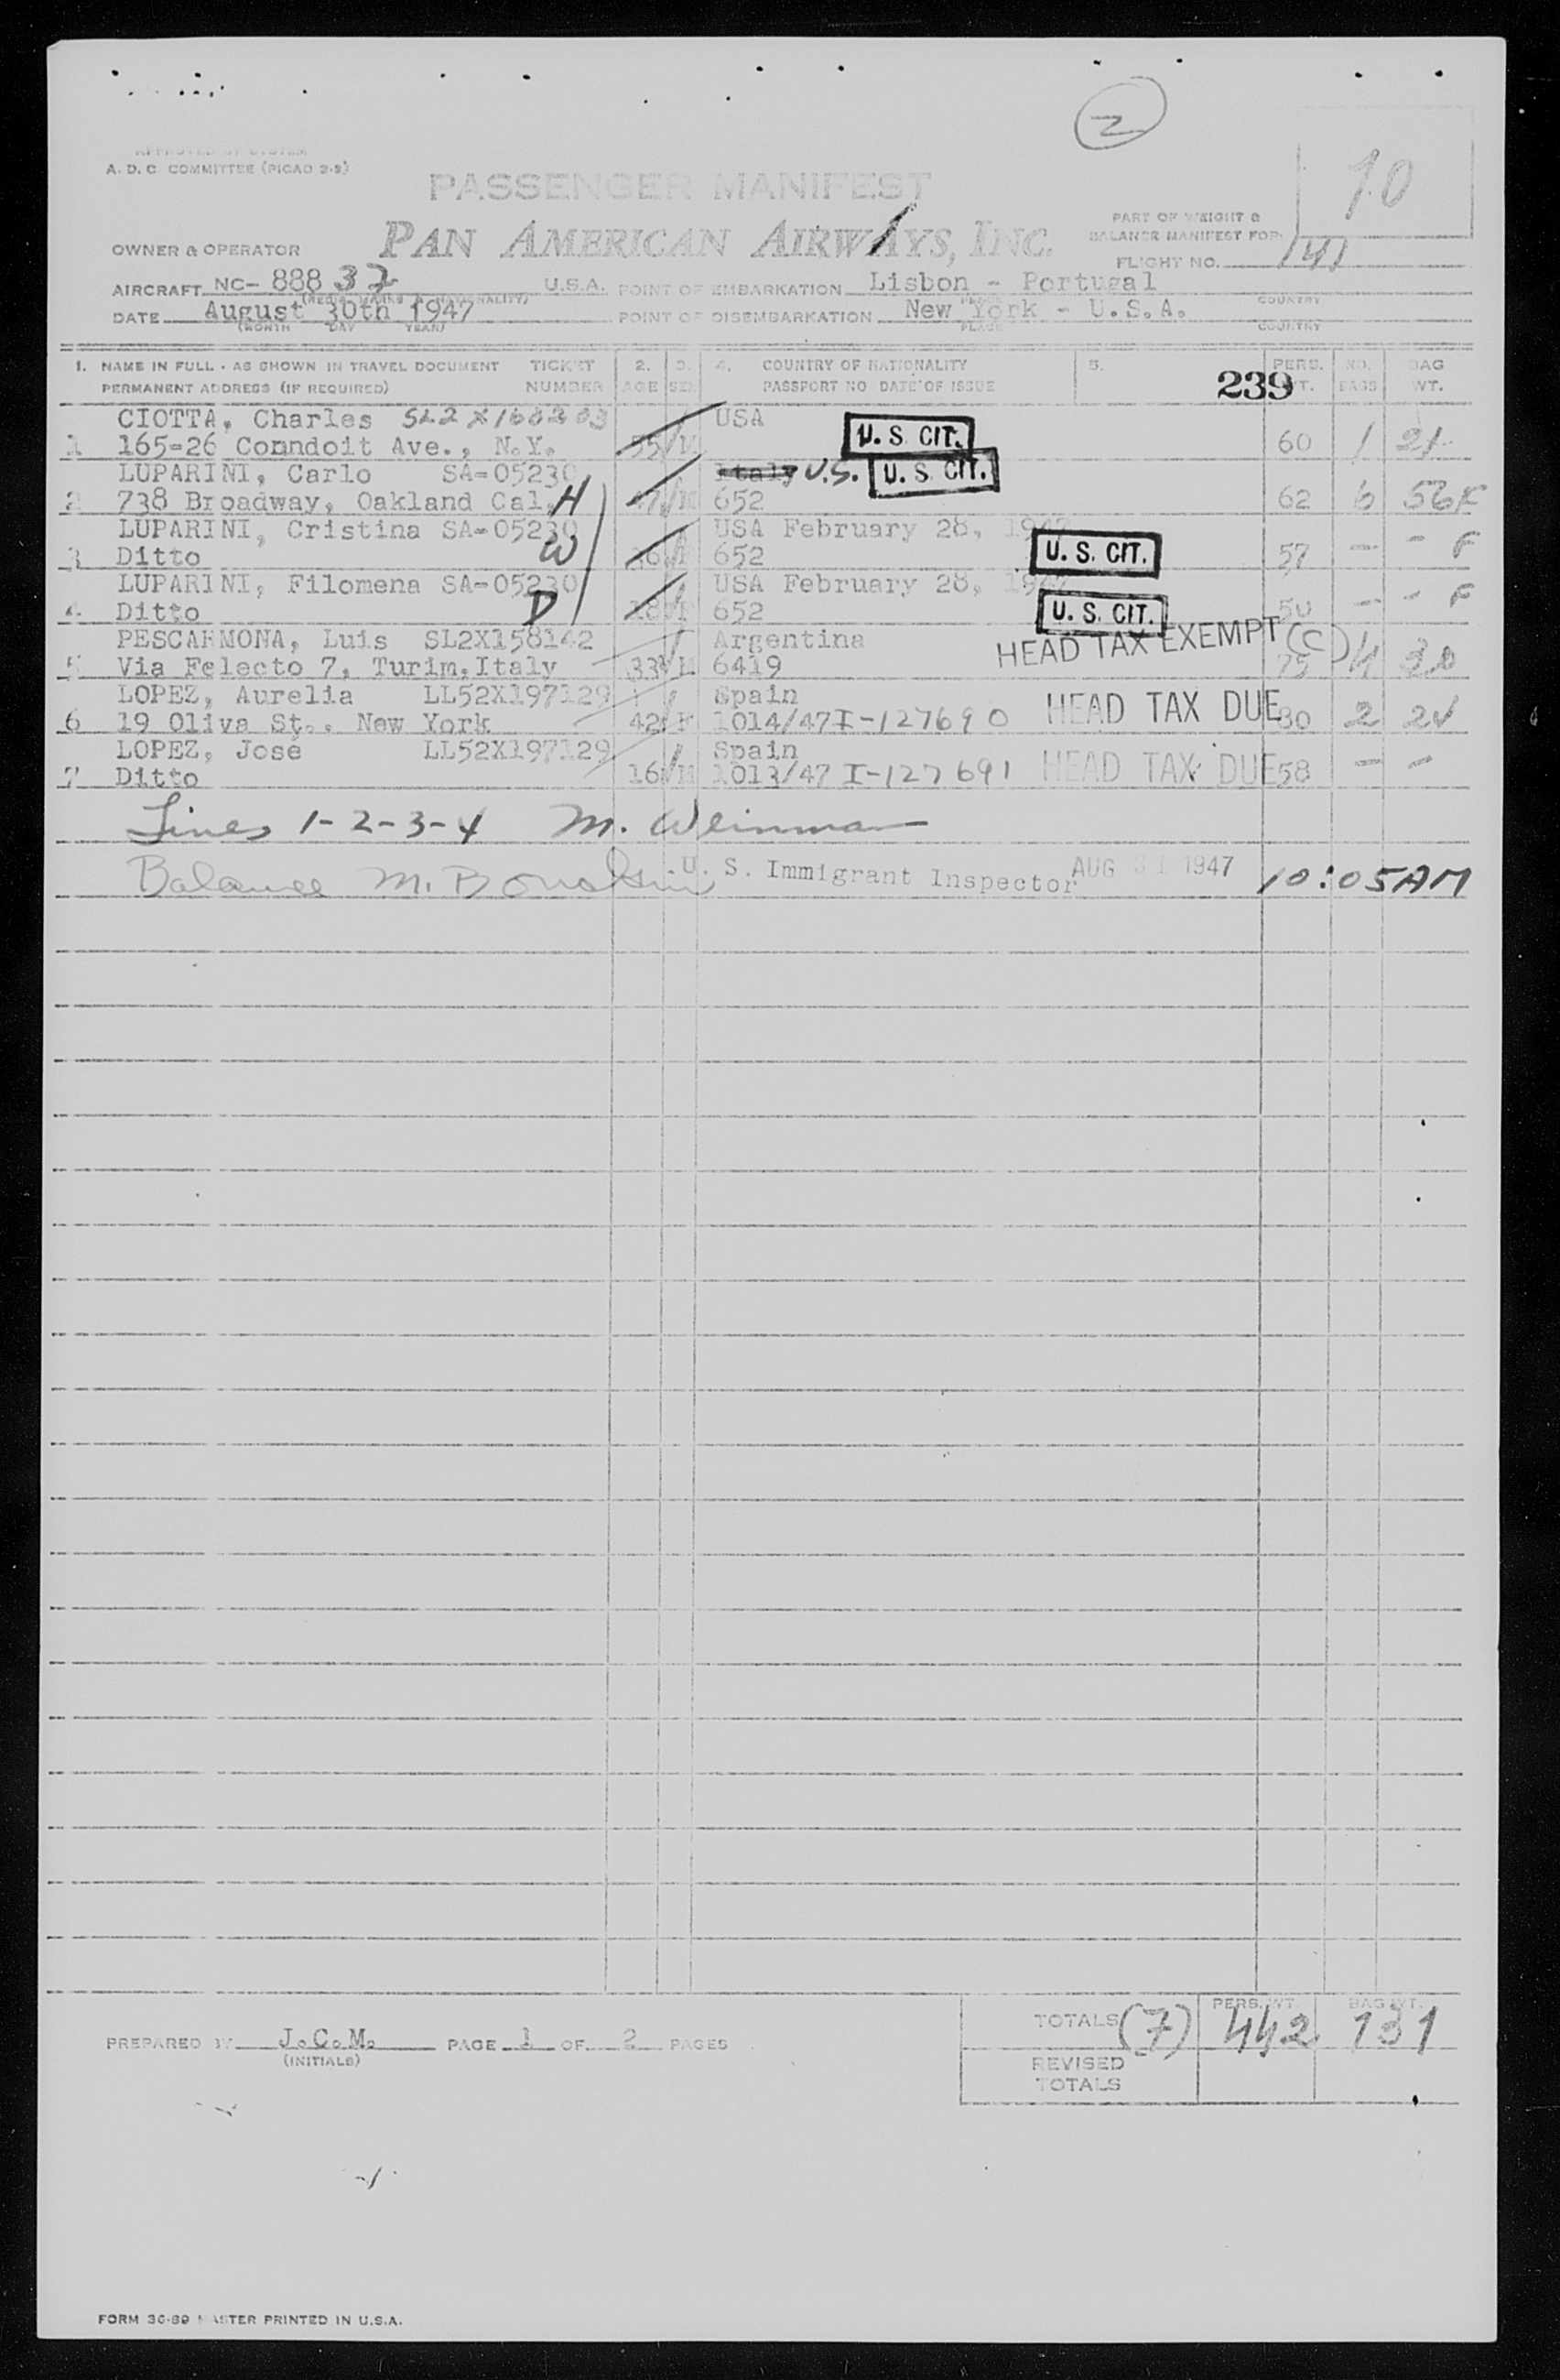 2
A. D. C. COMMITTEE (PICAO 2-9)
10
PASSENGER MANIFEST
PART OF WEIGHT &
BALANCE MANIFEST FOR
OWNER & OPERATOR PAN AMERICAN AIRWAYS, INC.
FLIGHT NO. 141
AIRCRAFT NC- 88832 U.S.A. POINT OF EMBARKATION Lisbon - Portugal
DATE August 30th 1947 POINT OF DISEMBARKATION New York - U.S.A.
(MONTH DAY YEAR) PLACE COUNTRY
1. NAME IN FULL - AS SHOWN IN TRAVEL DOCUMENT TICKET 2. 3. 4. COUNTRY OF NATIONALITY 5. PERS. NO. BAG
PERMANENT ADDRESS (IF REQUIRED) NUMBER AGE SEX PASSPORT NO DATE OF ISSUE 239 WT. BAGS WT.
CIOTTA, Charles USA U. S. CIT.
1 165-26 Conndoit Ave., N.Y. 55 M 60 1 21
LUPARINI, Carlo SA-05230 Italy U.S. U. S. CIT.
2 738 Broadway, Oakland Cal. H 652 62 6 56 F
LUPARINI, Cristina SA-05230 USA February 28, 1947
3 Ditto W 652 U. S. CIT. 57 - - F
LUPARINI, Filomena SA-05230 USA February 28, 1947
4 Ditto D 652 U. S. CIT. 50 - - F
PESCARMONA, Luis SL2X158142 Argentina HEAD TAX EXEMPT (C)
5 Via Felecto 7, Turim, Italy 33 M 6419 75 4 30
LOPEZ, Aurelia LL52X197129 Spain HEAD TAX DUE
6 19 Oliva St., New York 42 F 1014/47 I-127690 80 2 24
LOPEZ, Jose LL52X197129 Spain HEAD TAX DUE
7 Ditto 16 M 1013/47 I-127691 58 - -
Lines 1-2-3-4 M. Weinman
Balance M. U. S. Immigrant Inspector AUG 31 1947 10:05AM
TOTALS (7) PERS. WT. 442 BAG WT. 131
PREPARED BY J.C.M. PAGE 1 OF 2 PAGES
(INITIALS)
REVISED
TOTALS
FORM 30-89 MASTER PRINTED IN U.S.A.